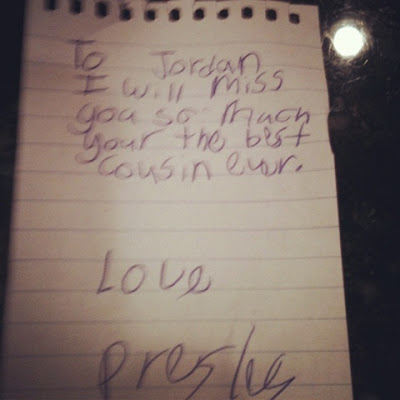 To Jordan
I will miss
you so much
your the best
cousin ever.
Love